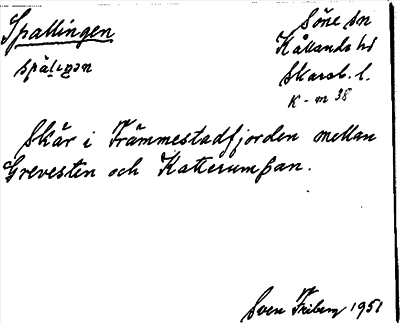 Spallingen
Söne sn
Kållands hd
spälıŋən
Skarab. l.
K-m 38
Skär i Främmestadfjorden mellan
Grevesten och Katterumpan.
Sven Friberg 1951